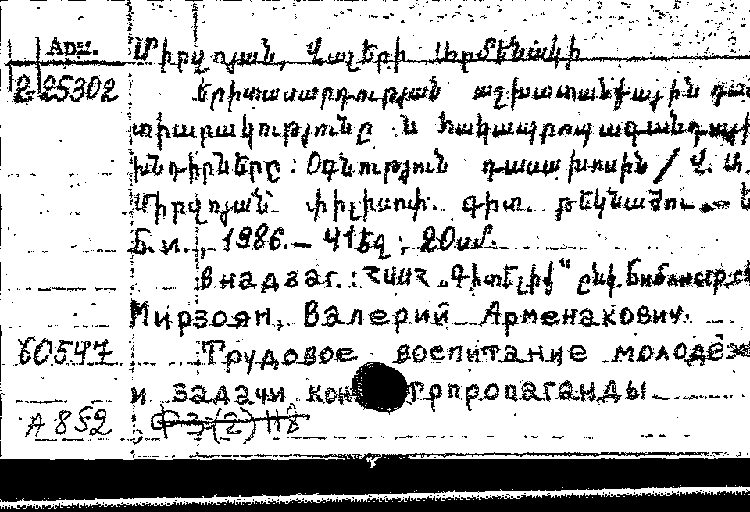 Արմ. Միրզոյան, Վալերի Արմենակի
2-25302 Երիտասարդության աշխատանքային դաս
տիարակությունը և հակապրոպագանդայի
խնդիրները: Օգնություն դասախոսին / Վ. Ա.
Միրզոյան փիլիսոփ. գիտ. թեկնածու.—
Б.и., 1986.— 41 էջ; 20 սմ.
В надзаг.: ՀՍՍՀ „Գիտելիք“ ընկ.
Мирзоян, Валерий Арменакович.
60547 Трудовое воспитание молодёж
и задачи кон трпропаганды
A 852 Ф 3 (2) 118